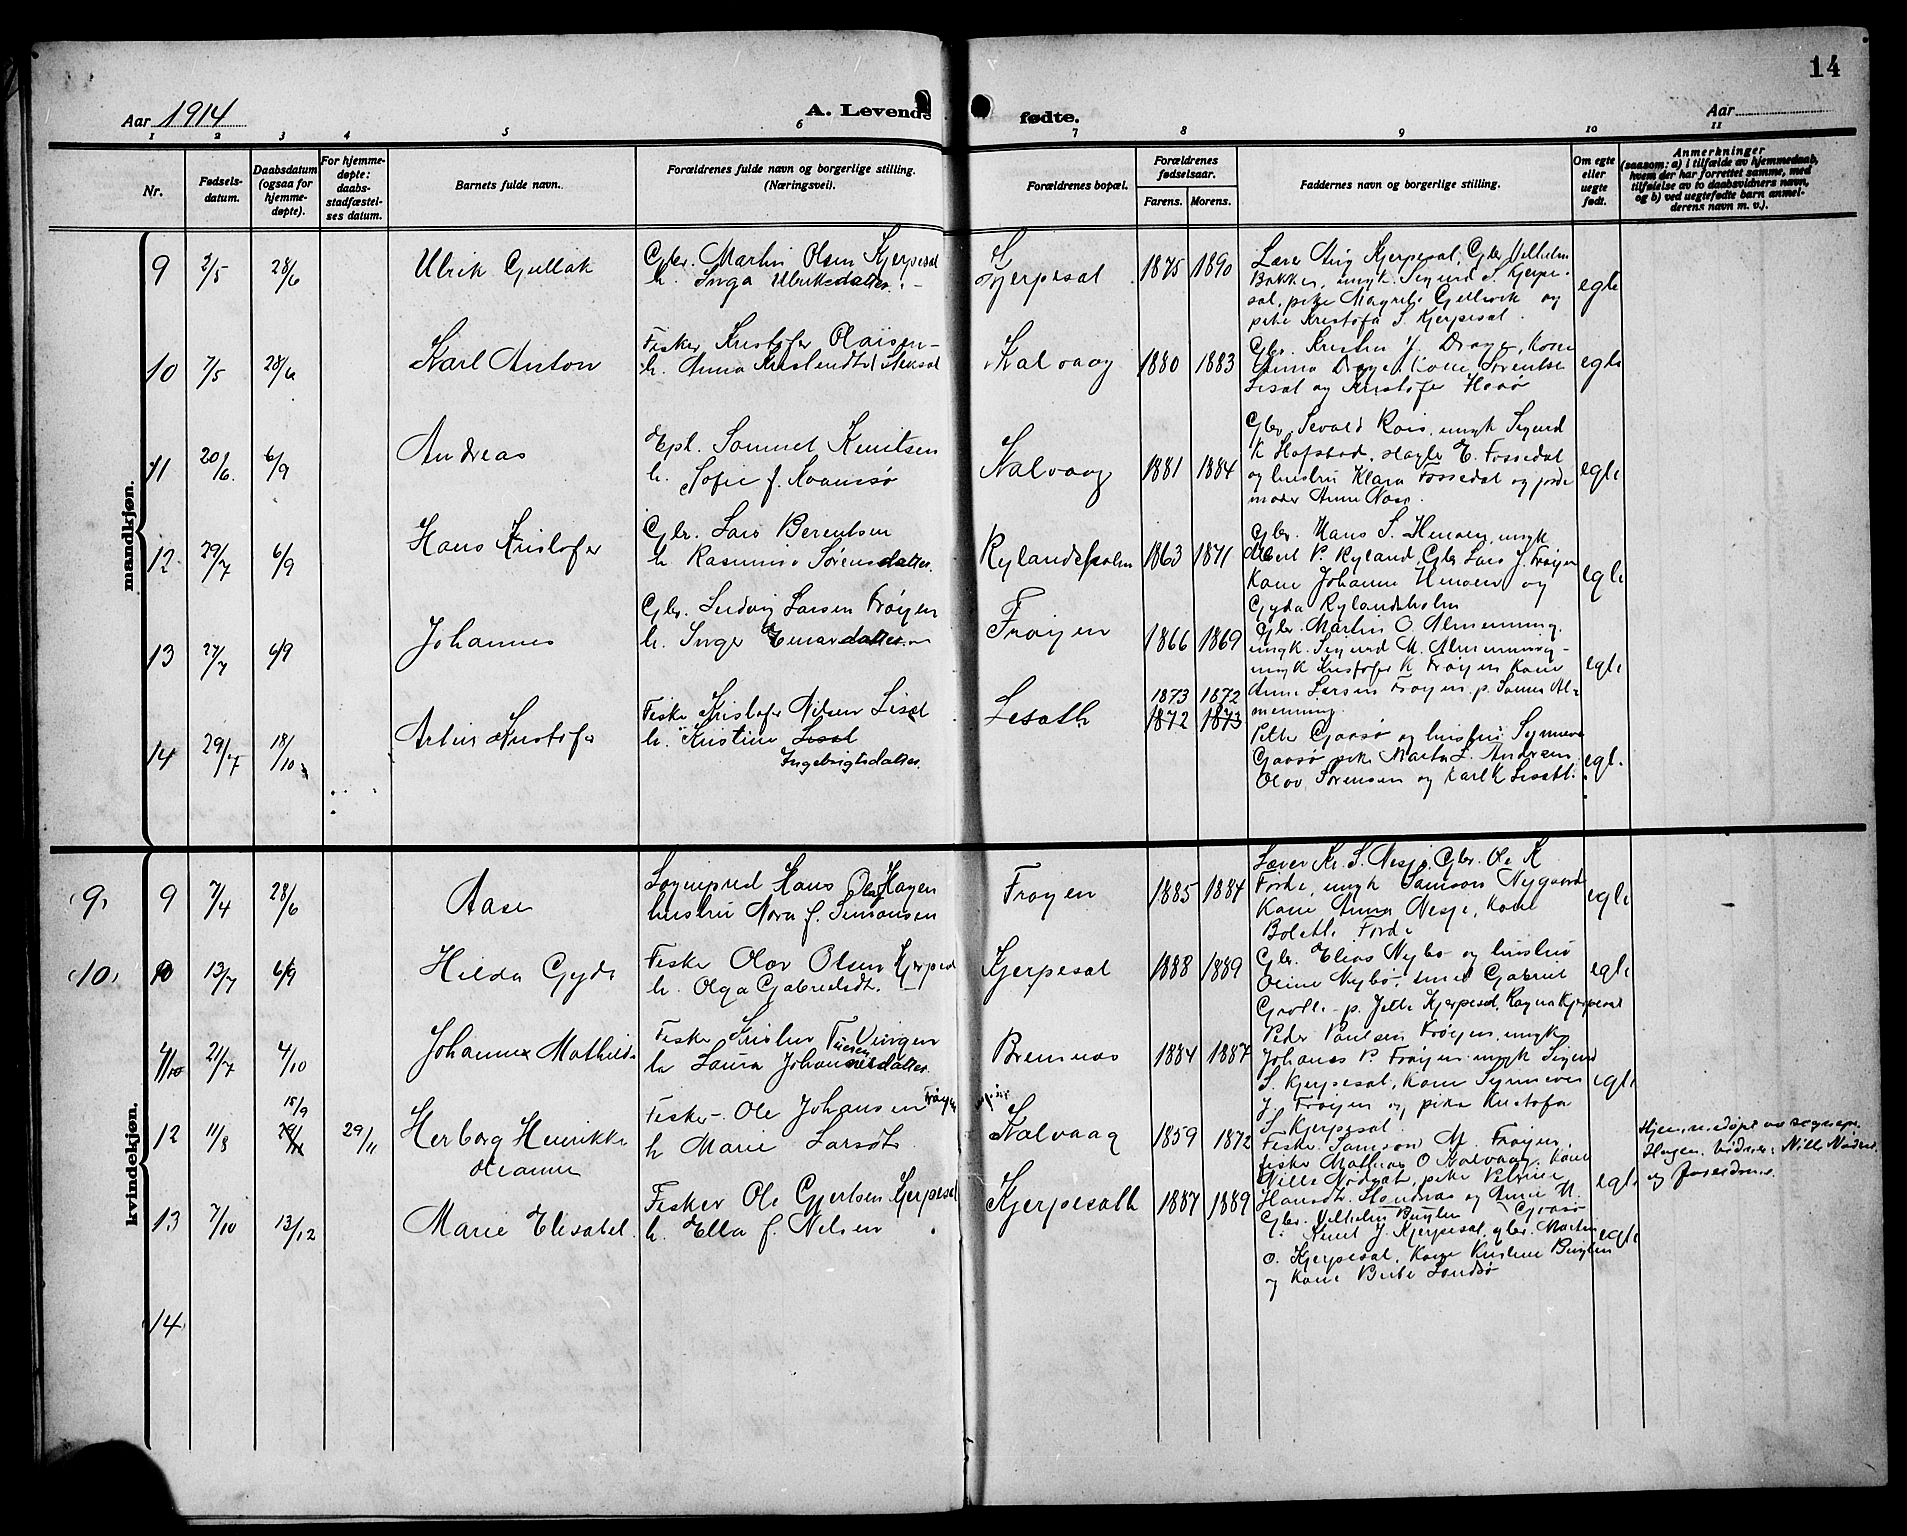 14
Aar 1914
A. Levende fødte.
Aar
1 2 3 4 5 6 7 8 9 10 11
Nr.
Fødsels-
datum.
Daabsdatum
(ogsaa for
hjemme-
døpte).
For hjemme-
døpte:
daabs-
stadfæstel-
ses datum.
Barnets fulde navn.
Forældrenes fulde navn og borgerlige stilling.
(Næringsvei).
Forældrenes bopæl.
Forældrenes
fødselsaar.
Farens. Morens.
Faddernes navn og borgerlige stilling.
Om egte
eller
uegte
født.
Anmerkninger
(saasom: a) i tilfælde av hjemmedaab,
hvem der har forrettet samme, med
tilføielse av to daabsvidners navn,
og b) ved uegtefødte barn anmel-
derens navn m. v.).
mandkjøn.
9 2/5 28/6 Ulrik Gullak
Gbr. Martin Olsen Kjerpesat
h. Inga Ulriksdatter.
Kjerpesat 1875 1890
Lærer Aug Kjerpesat, Gbr Vilhelm
Bakken, ungk. Sigurd S. Kjerpe-
sat, pike Magnhi Gullvik og
pike Kristofa S. Kjerpesat.
egte
10 7/5 28/6 Karl Anton
Fisker Kristofer Olaisen
h. Anna
Kalvaag 1880 1883
Gbr. Kristen J. Drage, kone
Anna Drage, kone Sørentse
Lisæt og Kristofer Hovø
egte
11 20/6 6/9 Andreas
Hpl. Samuel Knutsen
h. Sofie f.
Kalvaag 1881 1884
Gbr. Sevald ungk Sigurd
K Hofstad, slagter E. Fossedal
og hustru Klara Fossedal og jorde
moder Anne
egte
12 29/7 6/9 Hans Kristofer
Gbr. Lars Berentsen
h. Rasmine Sørensdatter.
Rylandsholm 1863 1871
Gbr. Hans S. Hennøen, ungk
Albert P. Ryland, Gbr Lars J. Frøyen
Kone Johanne Hennøen og
Gyda Rylandsholm
egte
13 27/7 6/9 Johannes
Gbr. Ludvig Larsen Frøyen
h. Inger Einarsdatter
Frøyen 1866 1869
Gbr. Martin O Almenning
ungk. Sigurd M. Almenning
ungk Kristofer K Frøyen Kone
Anne Larsen Frøyen p. Sanna Al-
menning.
egte
14 29/7 18/10 Artur Kristofer
Fisker Kristofer Nilsen Liset
h. Kristine Liset
Ingebrigtsdatter.
Lesæth 1873 1872
1872 1873
Petter Gaasø og hustru Synneve
Gaasø pike Marta L. Andersen
Olov Sørensen og Karl K Lisæth.
egt.
kvindekjøn.
(9) 9 7/4 28/6 Aase
Sogneprest Hans Olaf Hagen
hustru Nora f. Simonsen
Frøyen 1885 1884
Lærer Kr. S. Nesje, Gbr. Ole K
Førde, ungk Samson Nygaard
Kone Anna Nesje, Kone
Bolette Førde
egte
(10) 10 13/7 6/9 Hilda Gyda
Fisker Olav Olsen Kjerpesæt
h. Olga Gabrielsdt.
Kjerpesat 1888 1889
Gbr. Elias Nybø og hustru
Oline Nybø, smed Gabriel
Grotle p. Jetta Kjerpesæt, Ragna Kjerpesæt
egte
11 21/7 4/10 Johanna Mathilde
Fisker Kristen Vingen
h. Laura Johannesdatter
Bremnes 1884 1887
Peder Paulsen Frøyen, ungk
Johanes P. Frøyen, ungk Sigurd
S. Kjerpesat, Kone Synneve
J. Frøyen og pike Kristofa
S. Kjerpesat
egte
12 11/8 15/9 29/11 29/11 Herborg Henrikke
Oleanne
Fisker Ole Johansen Frøyen
h Marie Larsdt.
Kalvaag 1859 1872
Fisker Samson M. Frøyen,
fisker Mathias O Kalvaag, Kone
Nille Nødset, pike Petrine
Hansdt. og Anne N.
Gaasø
egte
Hjemmedøpt av sognepr.
Hagen. vidner: Nille Nødset
og forældrene.
13 7/10 13/12 Marie Elisabet
Fisker Ole Gjertsen Kjerpesat
h. Ella f. Nilsen
Kjerpesæth 1887 1889
Gbr. Vilhelm
Knut J. Kjerpesat, gbr. Martin
O. Kjerpesat, Kone Kristine
og Kone Berte
egte
14